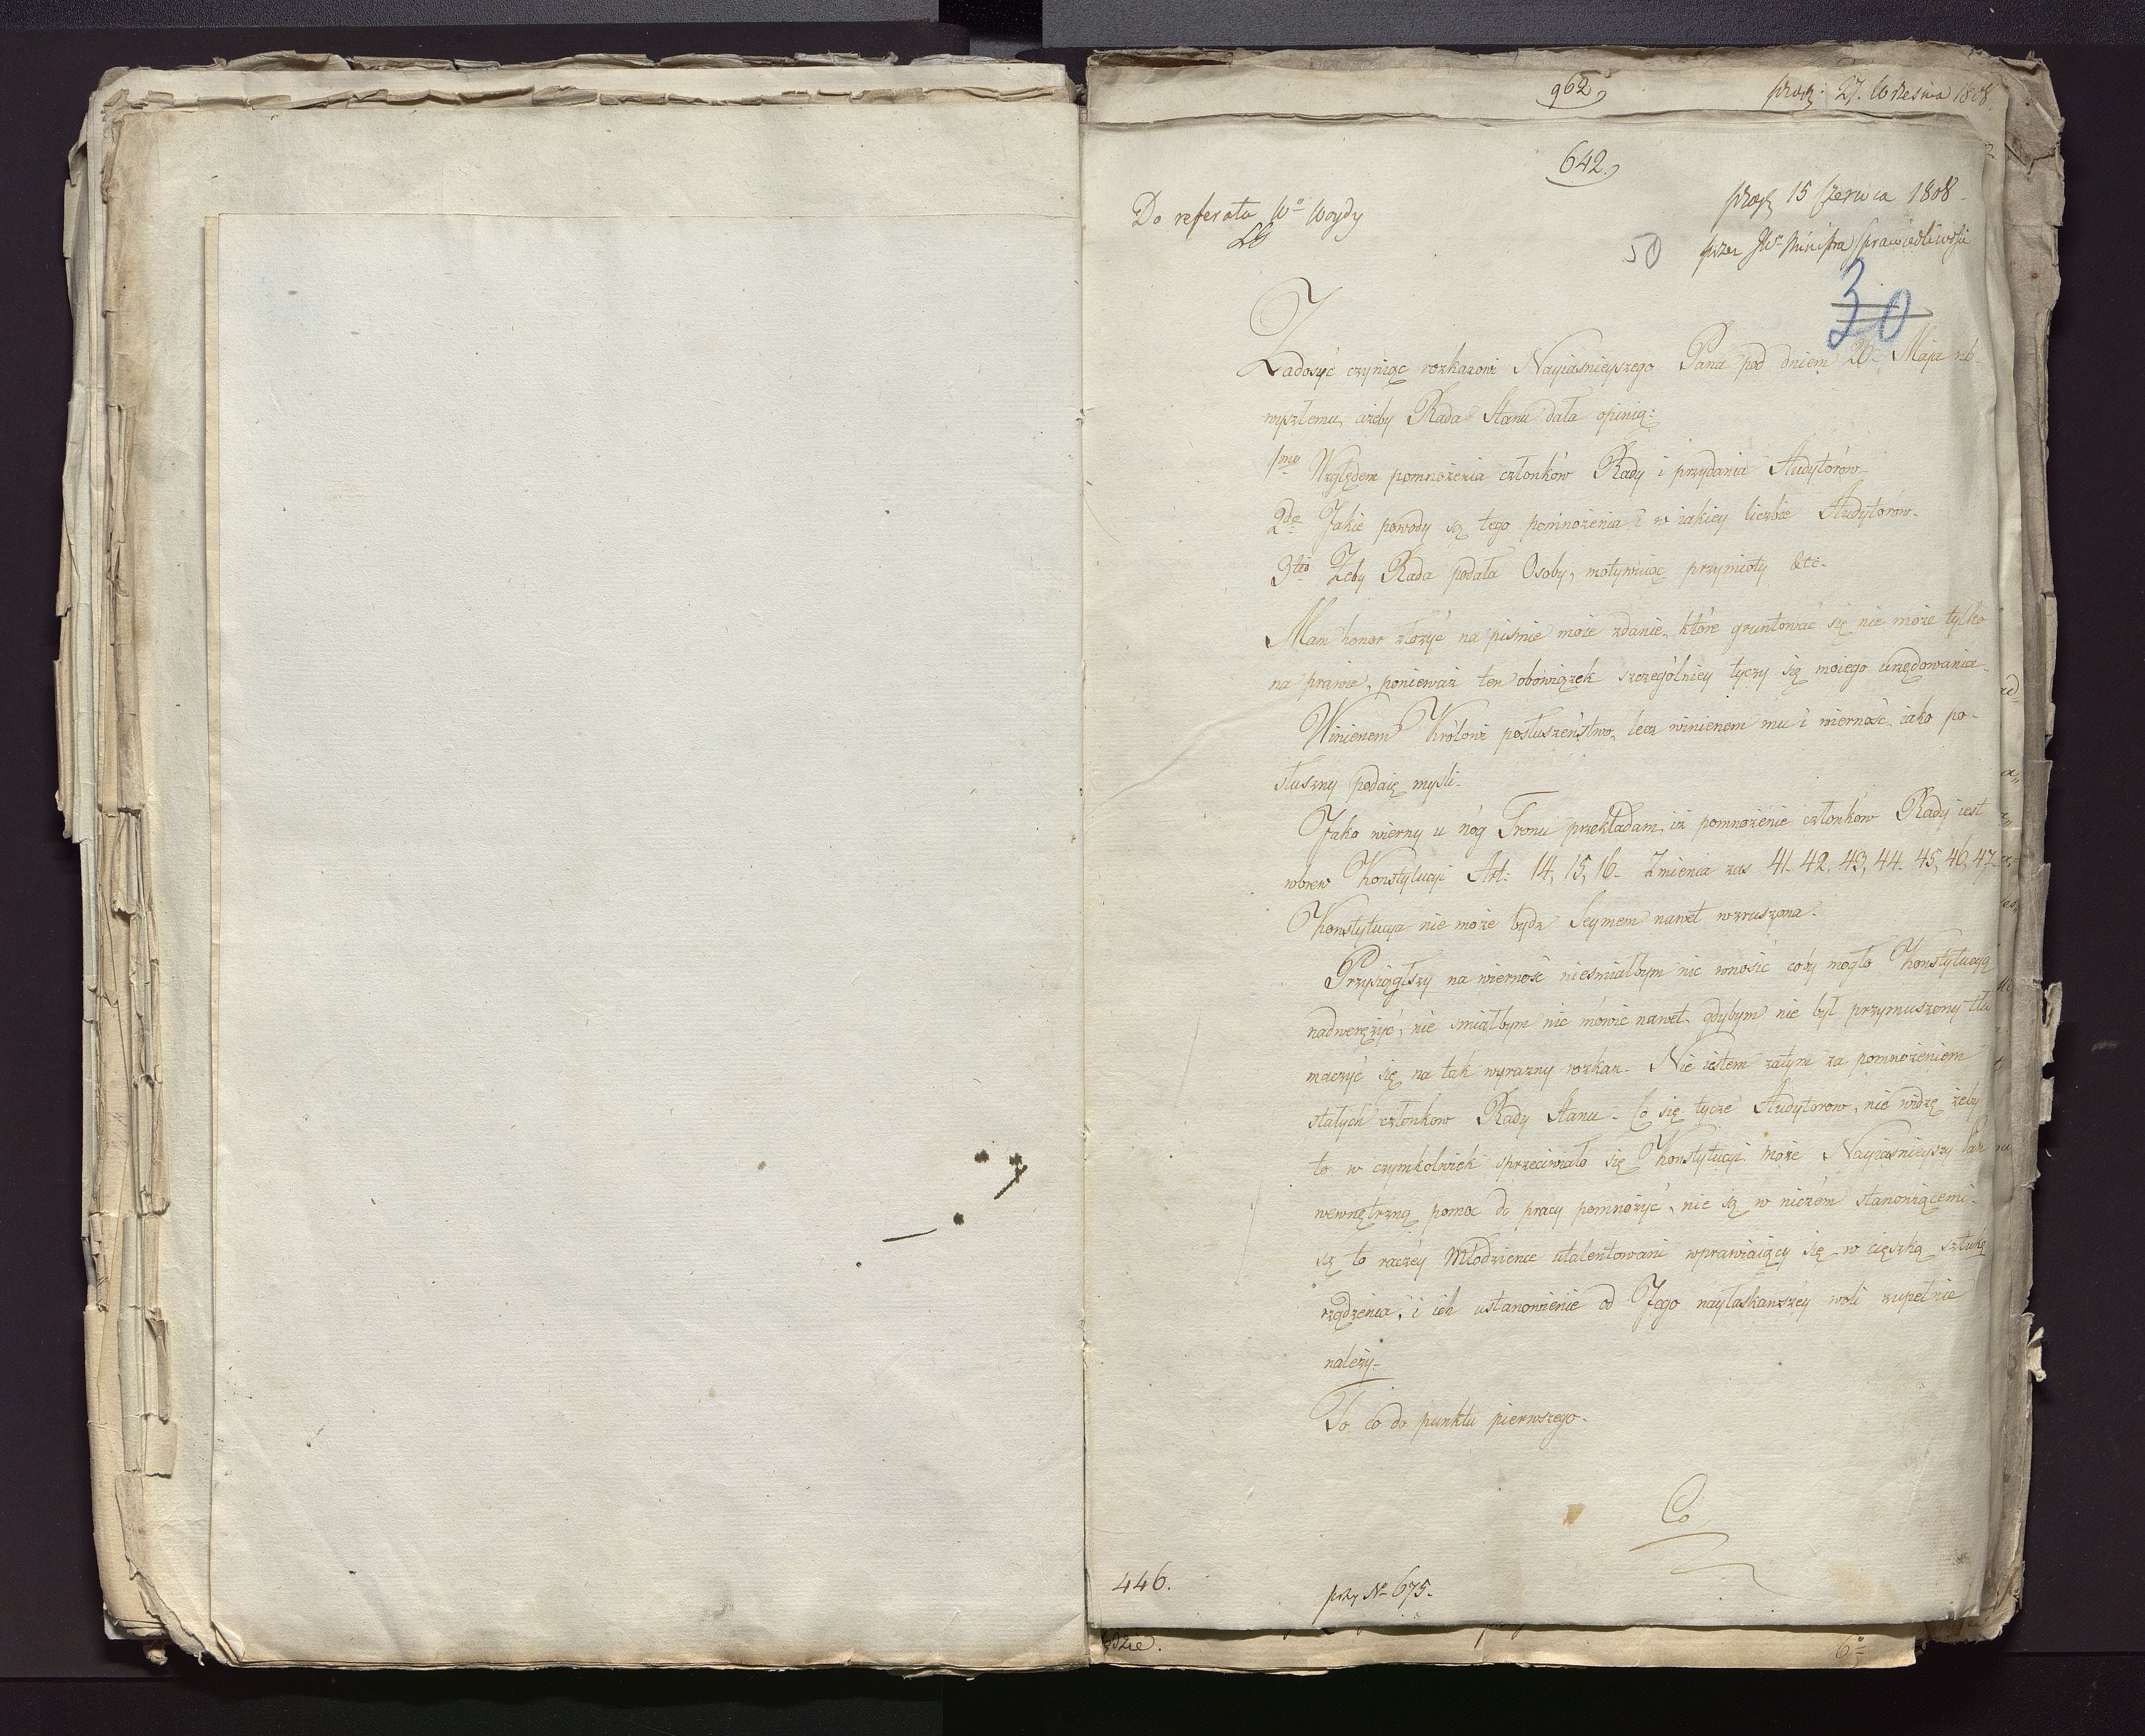 962.
prod: 27. Września 1808.
642.
Do referatu Wo Woydy
prod 15 Czerwca 1808.
przez JWo Ministra Sprawiedliwości
50
30
Zadosyć czyniąc rozkazowi Nayiaśnieyszego Pana pod dniem 26 Maja rb.
wyszłemu, ażeby Rada Stanu dała opinią:
1mo Względem pomnożenia członków Rady i przydania Audytorów.
2do Jakie powody są tego pomnożenia i w iakiey liczbie Audytorów.
3tio Żeby Rada podała Osoby, motywuiąc przymioty &tc.
Mam honor złożyć na piśmie moie zdanie, które gruntować się nie może tylko
na prawie, ponieważ ten obowiązek szczególniey tyczy się moiego urzędowania.
Winienem Królowi posłuszeństwo, lecz winienem mu i wierność, iako po-
słuszny podaię myśli.
Jako wierny u nóg Tronu przekładam, iż pomnożenie członków Rady iest
wbrew Konstytucyi Art: 14, 15, 16. Zmienia zas 41. 42, 43, 44. 45, 46, 47.
Konstytucya nie może bydz Seymem nawet wzruszona.
Przysiągłszy na wierność nieśmiałbym nic wnosić coby mogło Konstytucyą
nadwerężyć, nie śmiałbym nic mówić nawet, gdybym nie był przymuszony tłu
maczyć się na tak wyrazny rozkaz. Nie iestem zatym za pomnożeniem
stałych członkow Rady Stanu. Co się tycze Audytorow, nie widzę żeby
to w czymkolwiek sprzeciwiało się Konstytucyi może Nayiaśnieyszy Pan
wewnętrzną pomoc do pracy pomnożyć, nie są w niczém stanowiącemi.
są to raczéy Młodzience utalentowani wprawiaiący się w ciężką sztukę
rządzenia, i ich ustanowienie od Jego nayłaskawszéy woli zupełnie
należy.
To co do punktu pierwszego.
Co
446.
przy No 675.
6o